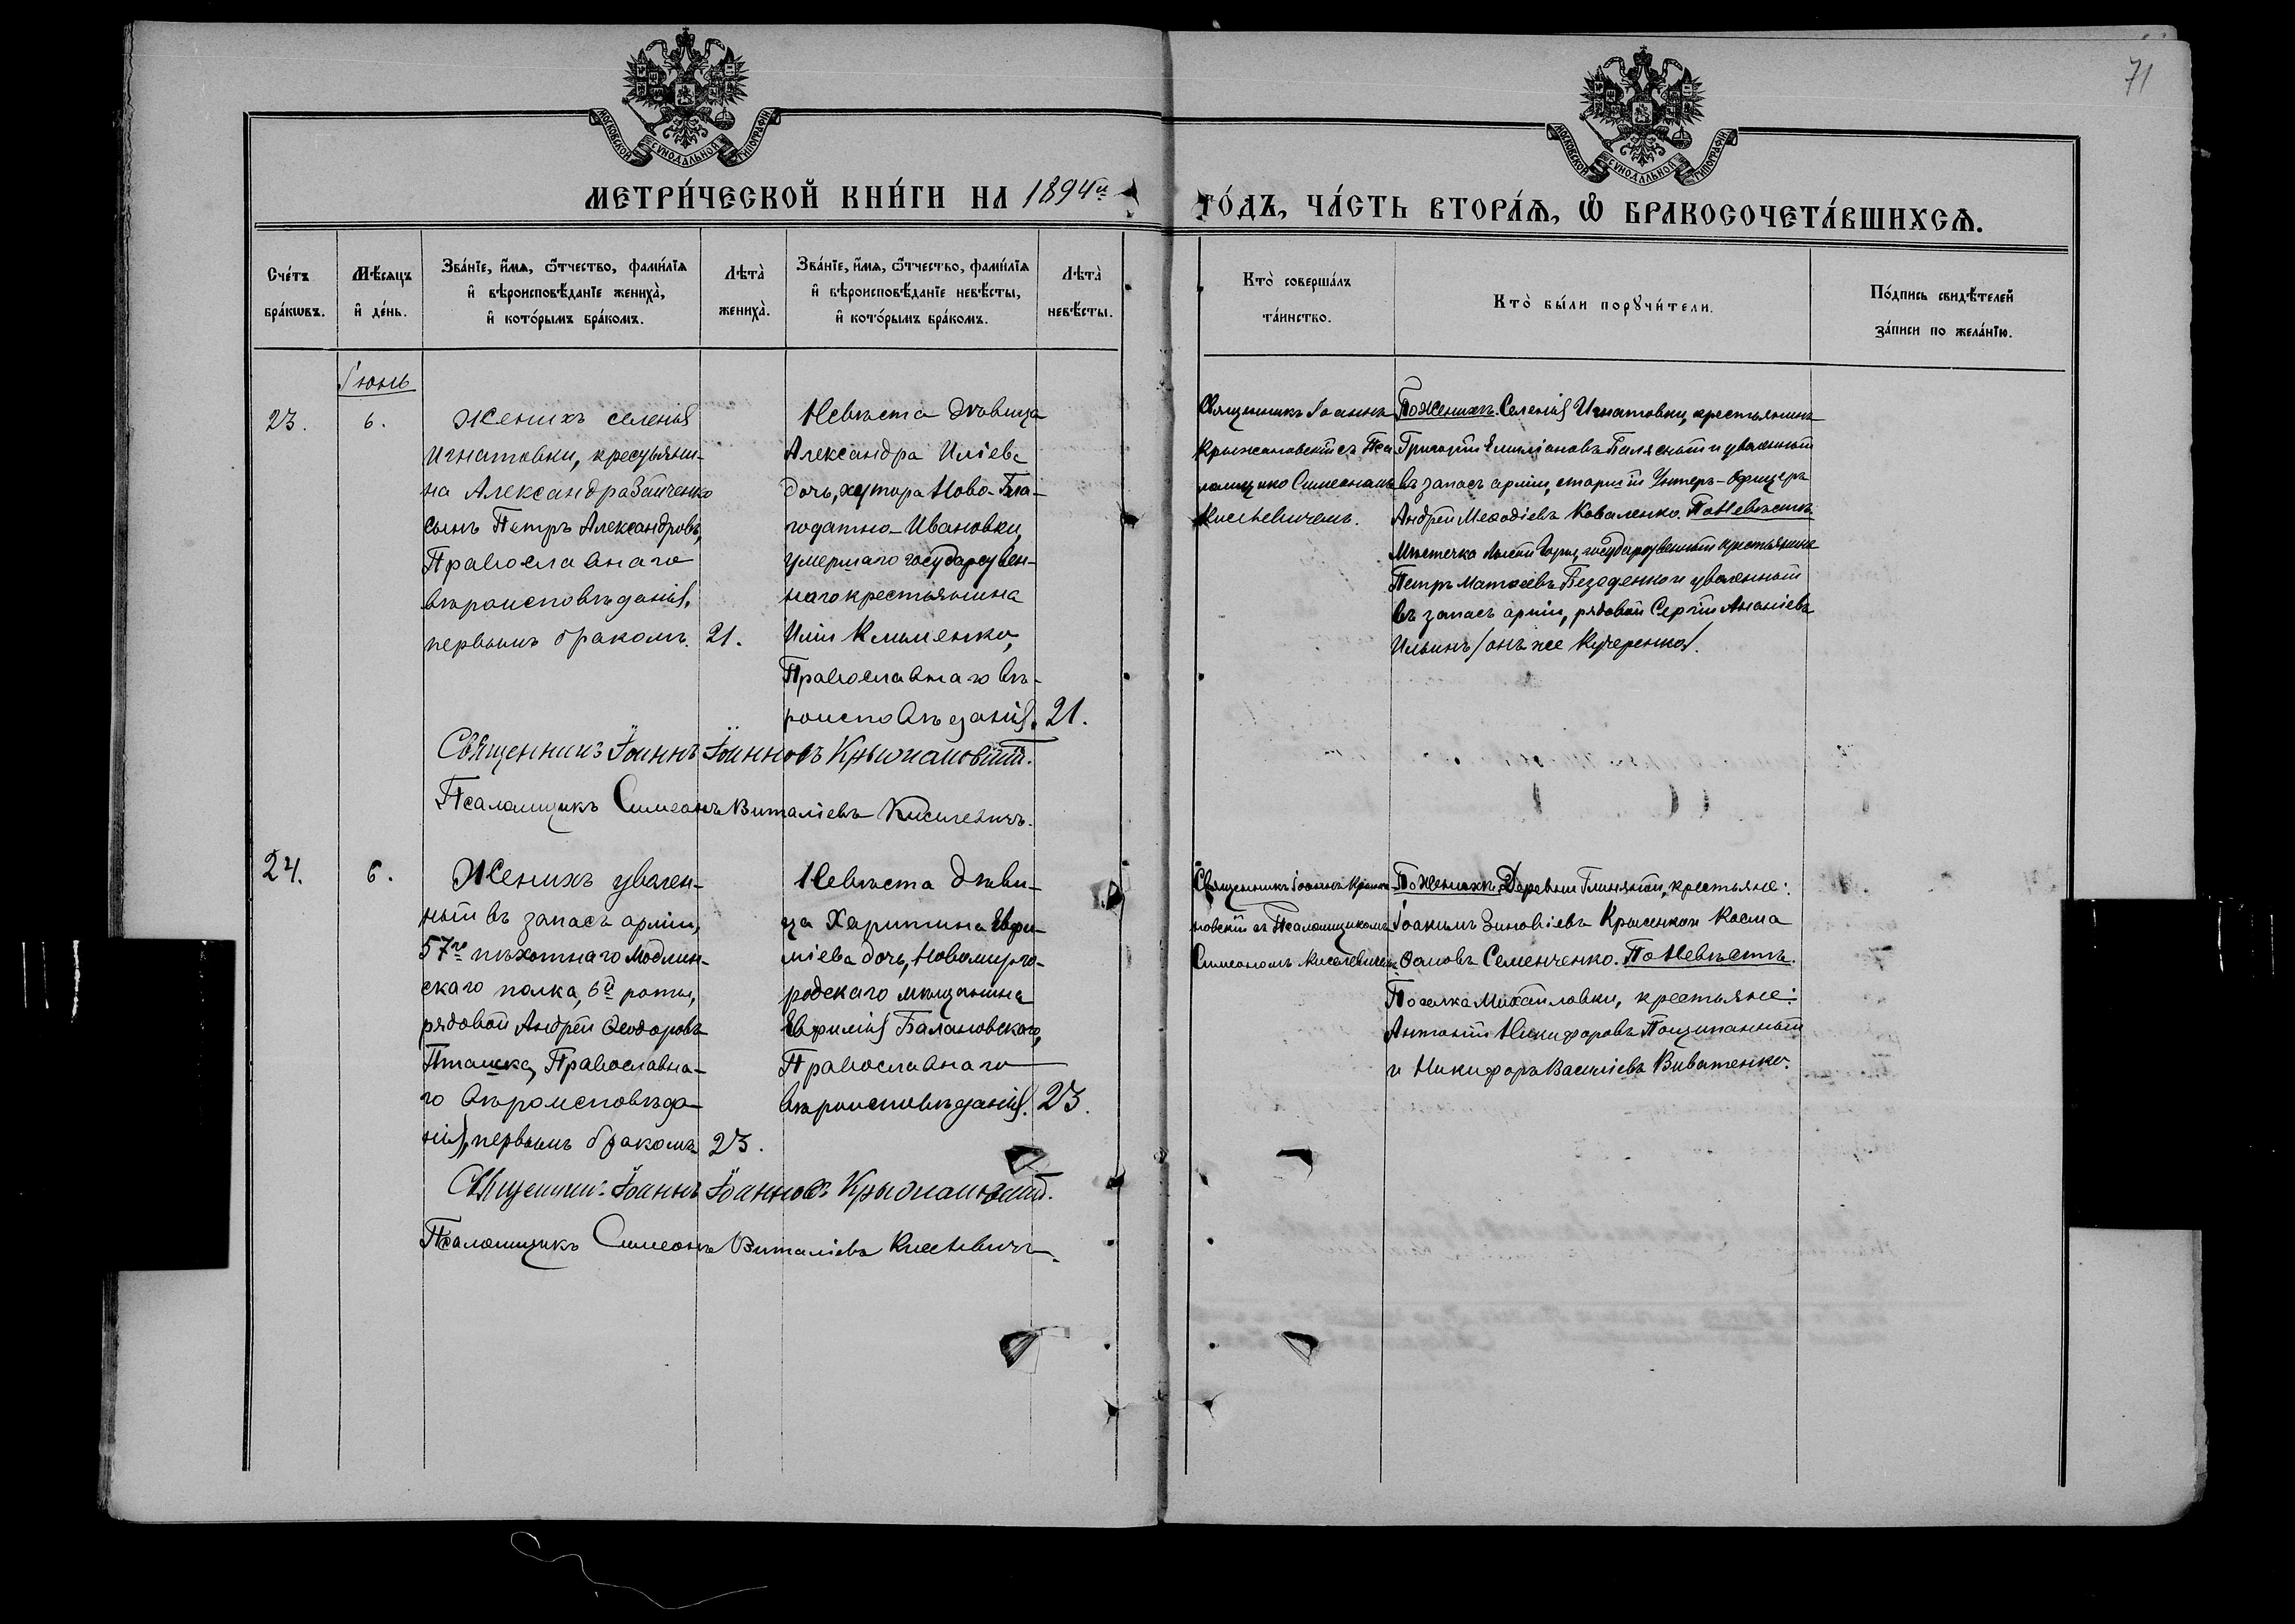 71
МОСКОВСКОЙ СУНОДАЛЬНОЙ ТИПОГРАФІИ
МОСКОВСКОЙ СУНОДАЛЬНОЙ ТИПОГРАФІИ
МЕТРИ́ЧЕСКОЙ КНИ́ГИ НА 1894й
ГО́ДЪ, ЧА́СТЬ ВТОРА́Ѧ, Ѽ БРАКОСОЧЕТА́ВШИХСѦ.
Сче́тъ
бра́кѡвъ.
Мѣ́сяцъ
и҆ де́нь.
Зва́нїе, и҆́мѧ, ѻ҆́тчество, фами́лїѧ
и҆ вѣроисповѣ́данїе жениха̀,
и҆ кото́рымъ бра́комъ.
Лѣта̀
жениха̀.
Зва́нїе, и҆́мѧ, ѻ҆́тчество, фами́лїѧ
и҆ вѣроисповѣ́данїе невѣ́сты,
и҆ кото́рымъ бра́комъ.
Лѣта̀
невѣ́сты.
Кто̀ соверша́лъ
та́инство.
Кто̀ бы́ли порꙋчи́тели.
По́дпись свидѣ́телей
за́писи по жела́нїю.
Іюнь
23.
6.
Женихъ селенія
Игнатовки, крестьяни-
на Александра Зайченко
сынъ Петръ Александровъ,
Православнаго
вѣроисповѣданія,
первымъ бракомъ.
21.
Невѣста дѣвица
Александра Иліева
дочь, хутора Ново-Бла-
годатно-Ивановки,
умершаго государствен-
наго крестьянина
Иліи Клименко,
Православнаго вѣ-
роисповѣданія.
21.
Священникъ Іоаннъ
Крыжановскій съ Пса
ломщико Симеономъ
Киселевичемъ.
По Женихѣ. Селенія Игнатовки, крестьянинъ
Григорій Емиліановъ Балясный и уволенный
въ запасъ арміи, старшій Унтеръ-Офицеръ
Андрей Меѳодіевъ Коваленко. По Невѣстѣ.
Мѣстечка Лысой Горы, государственный крестьянинъ
Петръ Матѳеевъ и уволенный
въ запасъ арміи, рядовой Сергій Ананіевъ
Ильинъ /онъ же Кучеренко/.
Священникъ Іоаннъ Іоанновъ Крыжановскій.
Псаломщикъ Симеонъ Виталіевъ Киселевичъ.
24.
6.
Женихъ уволен-
ный въ запасъ арміи,
57го пѣхотнаго Модлин-
скаго полка, 6й роты,
рядовой Андрей Ѳеодоровъ
Пташка, Православна-
го вѣроисповѣда-
нія, первымъ бракомъ
23.
Невѣста дѣви-
ца Харитина Евфи-
міева дочь, Новомирго-
родскаго мѣщанина
Евфимія Балановскаго,
Православнаго
вѣроисповѣданія.
23.
Священникъ Іоаннъ Крыжа-
новскій съ Псаломщикомъ
Симеономъ Киселевичемъ
По Женихѣ. Деревни Глиняной, крестьяне:
Іоакимъ Зиновіевъ Крысенко и Косма
Ѳомовъ Семенченко. По Невѣстѣ.
Поселка Михайловки, крестьяне:
Антоній Никифоровъ Пощипанный
и Никифоръ Василіевъ Виватенко.
Священникъ Іоаннъ Іоанновъ Крыжановскій.
Псаломщикъ Симеонъ Виталіевъ Киселевичъ.